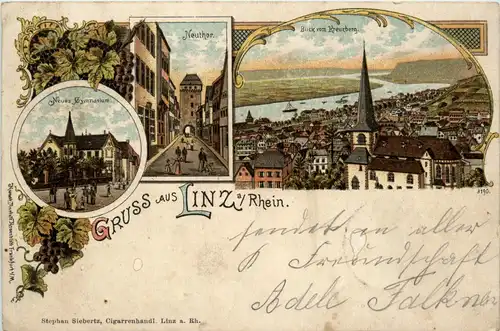 Neuthor.
Blick vom Kaiserberg.
Neues Gymnasium.
3190.
GRUSS AUS LINZ a/Rhein.
sendet in aller
Freundschaft
Adele Falk
Stephan Siebertz, Cigarrenhandl. Linz a. Rh.